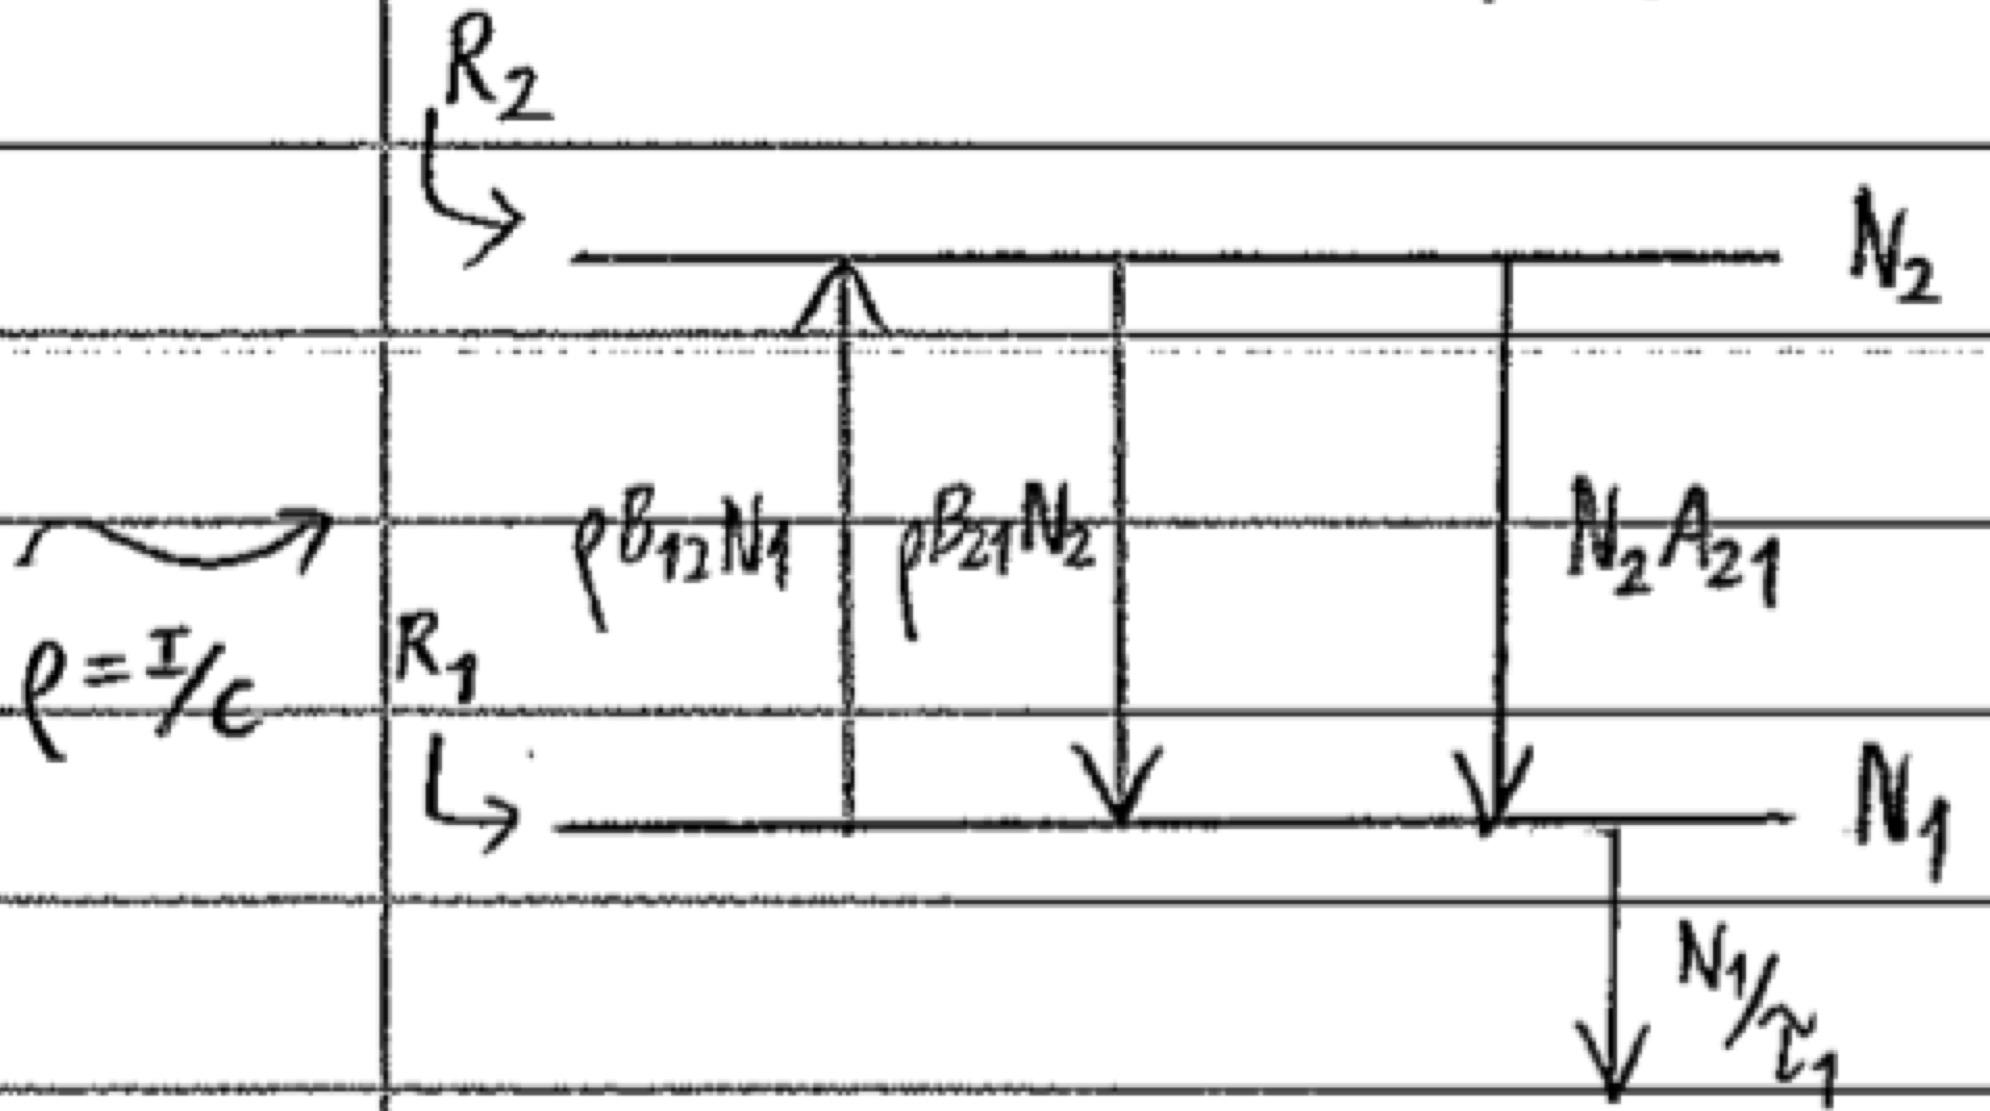 R₂
N₂
ρB₁₂N₁ ρB₂₁N₂ N₂A₂₁
ρ = I/c
R₁
N₁
N₁/τ₁